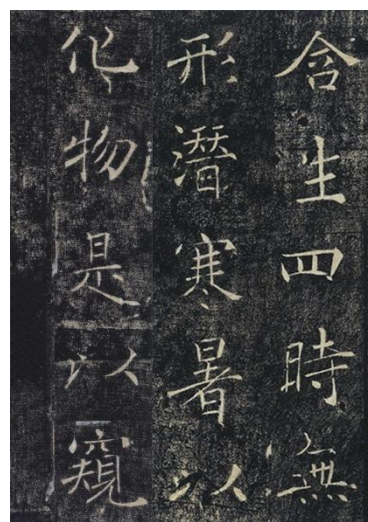 含生四時無
形潛寒暑以
化物是以窺